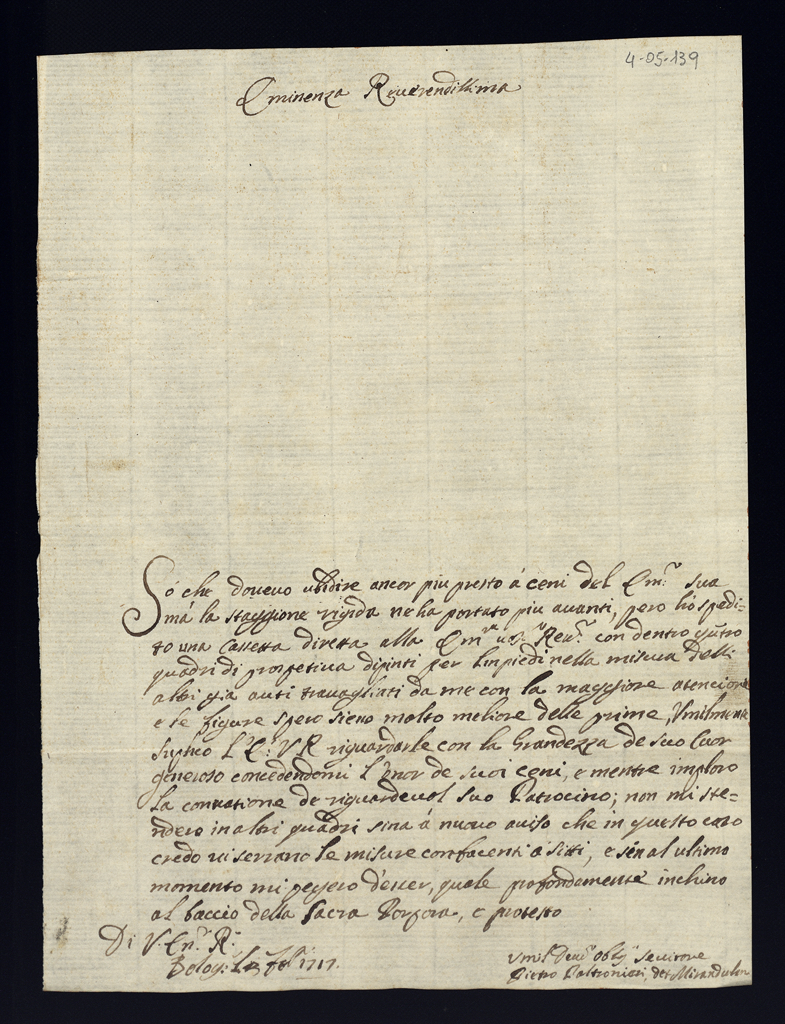 4-05-139
Eminenza Reuerendissima
Só che doueuo ubidire ancor piu presto á ceni del Em:ª sua
má la staggione rigida ne ha portato piu auanti, pero hó spedi=
to una Cassetta diretta alla Em:ª Reu:ª con dentro
quadri di prospetiua dipinti per Limpiedi nella misura delli
altri già auti trauagliati da me con la maggiore atencione
e le figure spero sieno molto meliore delle prime, Vmilmente
suplico L'E: V R riguardarle con la Grandezza de suo Cuor
generoso concedendomi l'Onor de suoi ceni, e mentre imploro
la de riguardeuol suo Patrocino; non mi ste=
ndero in altri quadri sina á nuouo auiso che in questo caso
credo ui serrano le misure confacenti a sitti, e sin al ultimo
momento mi d'esser, quale profondamente inchino
al baccio della Sacra Porpora, e protesto
Di V. Em:ª R:ª
Bolog: 1717.
Vmil: Deu:º Obl: Seruitore
Pietro Paltronieri, det Mirandulese